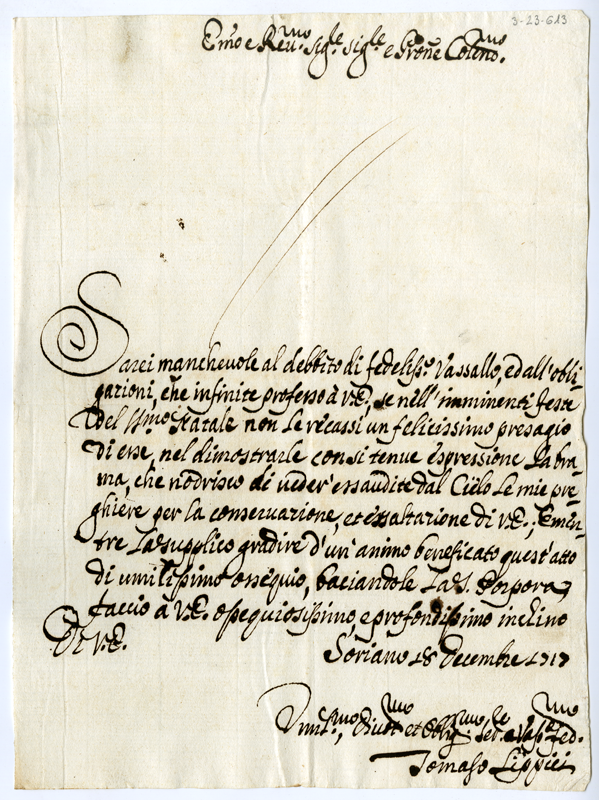 3-23-613
Em̃o e Reu.mo Sig.re Sig.re e Prõne Colend.mo
Sarei manchevole al debbito di fedeliss.o Vassallo, ed all'obli-
gazioni, che infinite professo à V.E., se nell'imminenti feste
del SS.mo Natale non le recassi un felicissimo presagio
di esse, nel dimostrarle con si tenue espressione la bra-
ma, che nodrisco di veder' essaudite dal Cielo le mie pre-
ghiere per la conservazione, et essaltazione di V.E.; E men-
tre La supplico gradire d'un'animo beneficato quest'atto
di umilissimo ossequio, baciandole La S. Porpora,
faccio à V.E. ossequiosissimo, e profondissimo inchino
Di V.E.
Soriano 18 decembre 1717
Umil.mo, Diuot.mo et Oblig.mo Se.re e Vass.o fed.mo
Tomaso Lippici